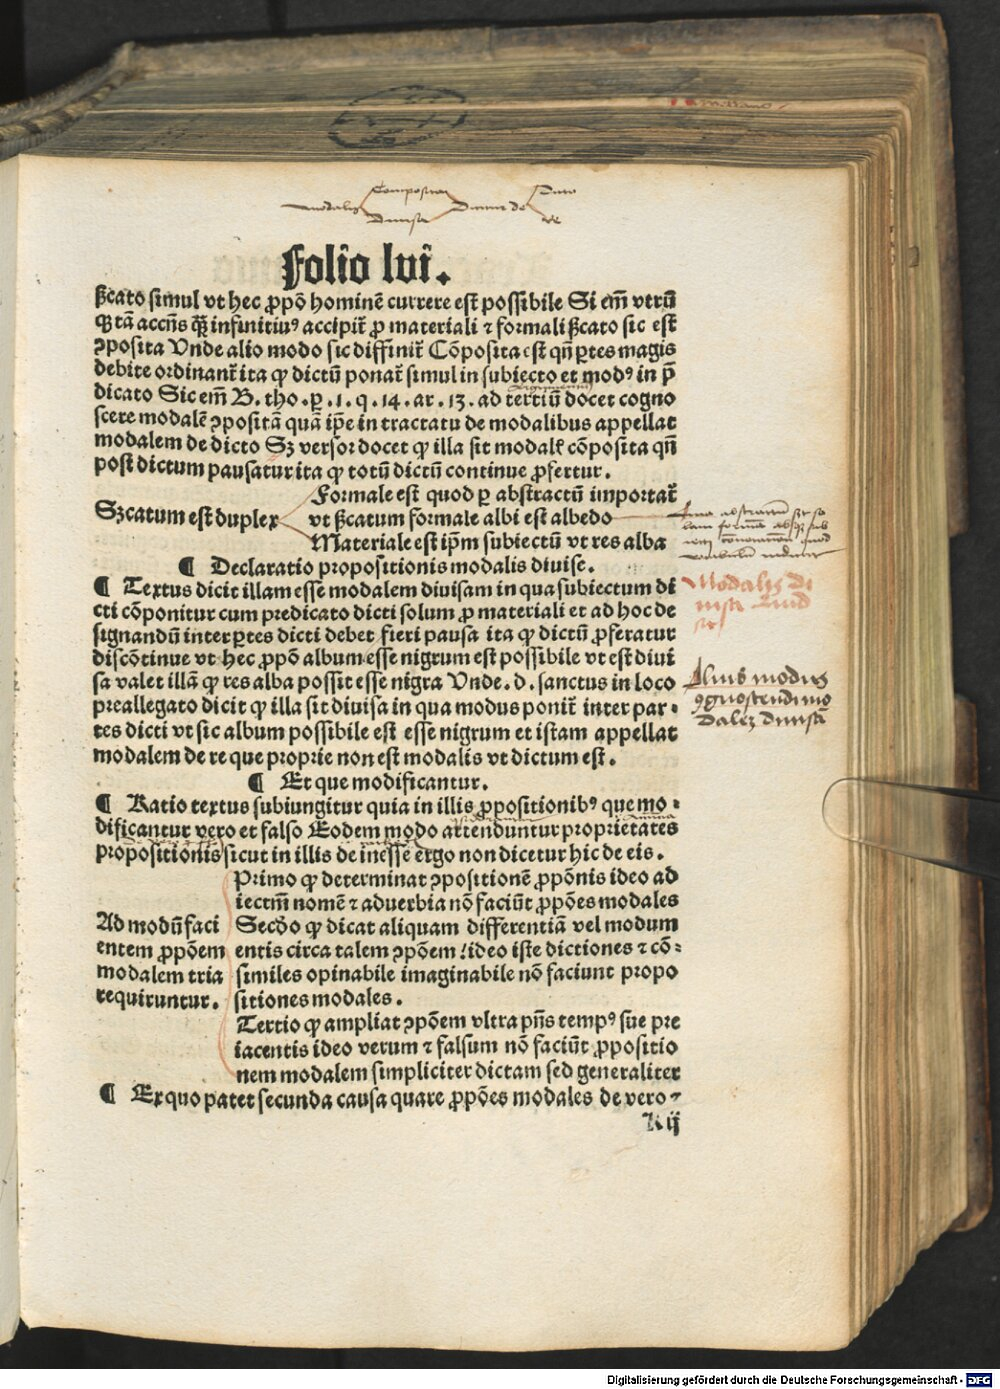 Composita
Dicto
modalis
Diuisa
Dicitur de
re
Folio lvi.
ßcato simul vt hec ꝓpō hominē currere est possibile Si em̄ verū
accn̄s infinitiuꝰ accipit̄ ꝓ materiali ⁊ formali ßcato sic est
ꝯposita Vnde alio modo sic diffinit̄ Cōposita est qn̄ ꝑtes magis
debite ordinant̄ ita ꝙ dictū ponat̄ simul in subiecto et modꝰ in p̄
dicato Sic em̄ B. tho. ꝑ .1. q. 14. ar. 13. ad tertiū docet cogno
scere modalē ꝯpositā quā ip̄e in tractatu de modalibus appellat
modalem de dicto Sꝫ versor docet ꝙ illa sit modal' cōposita qn̄
post dictum pausatur ita ꝙ totū dictū continue ꝓfertur.
Formale est quod ꝑ abstractū importat̄
Sꝫcatum est duplex
vt ßcatum formale albi est albedo
Materiale est ip̄m subiectū vt res alba
¶ Declaratio propositionis modalis diuise.
¶ Textus dicit illam esse modalem diuisam in qua subiectum di
cti cōponitur cum predicato dicti solum ꝓ materiali et ad hoc de
signandū inter ꝑtes dicti debet fieri pausa ita ꝙ dictū ꝓferatur
discōtinue vt hec ꝓpō album esse nigrum est possibile vt est diui
sa valet illā ꝙ res alba possit esse nigra Vnde .d. sanctus in loco
preallegato dicit ꝙ illa sit diuisa in qua modus ponit̄ inter par⸗
tes dicti vt sic album possibile est esse nigrum et istam appellat
modalem de re que proprie non est modalis vt dictum est.
Modalis di
uisa Quid
sit
Alius modus
ꝯgnoscendi mo
dalem diuisā
¶ Et que modificantur.
¶ Ratio textus subiungitur quia in illis ꝓpositionibꝰ que mo⸗
dificantur vero et falso Eodem modo attenduntur proprietates
propositionis sicut in illis de inesse ergo non dicetur hic de eis.
Primo ꝙ determinat ꝯpositionē ꝓpōnis ideo ad
iectm̄ nomē ⁊ aduerbia nō faciūt ꝓpōes modales
Ad modū faci
entem ꝓpōem
modalem tria
requiruntur.
Secdo ꝙ dicat aliquam differentiā vel modum
entis circa talem ꝯpōem / ideo iste dictiones ⁊ cō⸗
similes opinabile imaginabile nō faciunt propo
sitiones modales.
Tertio ꝙ ampliat ꝯpōem vltra pn̄s tempꝰ sue pre
iacentis ideo verum ⁊ falsum nō faciūt ꝓpositio
nem modalem simpliciter dictam sed generaliter
¶ Ex quo patet secunda causa quare ꝓpōes modales de vero ⁊
K ij
Digitalisierung gefördert durch die Deutsche Forschungsgemeinschaft - DFG